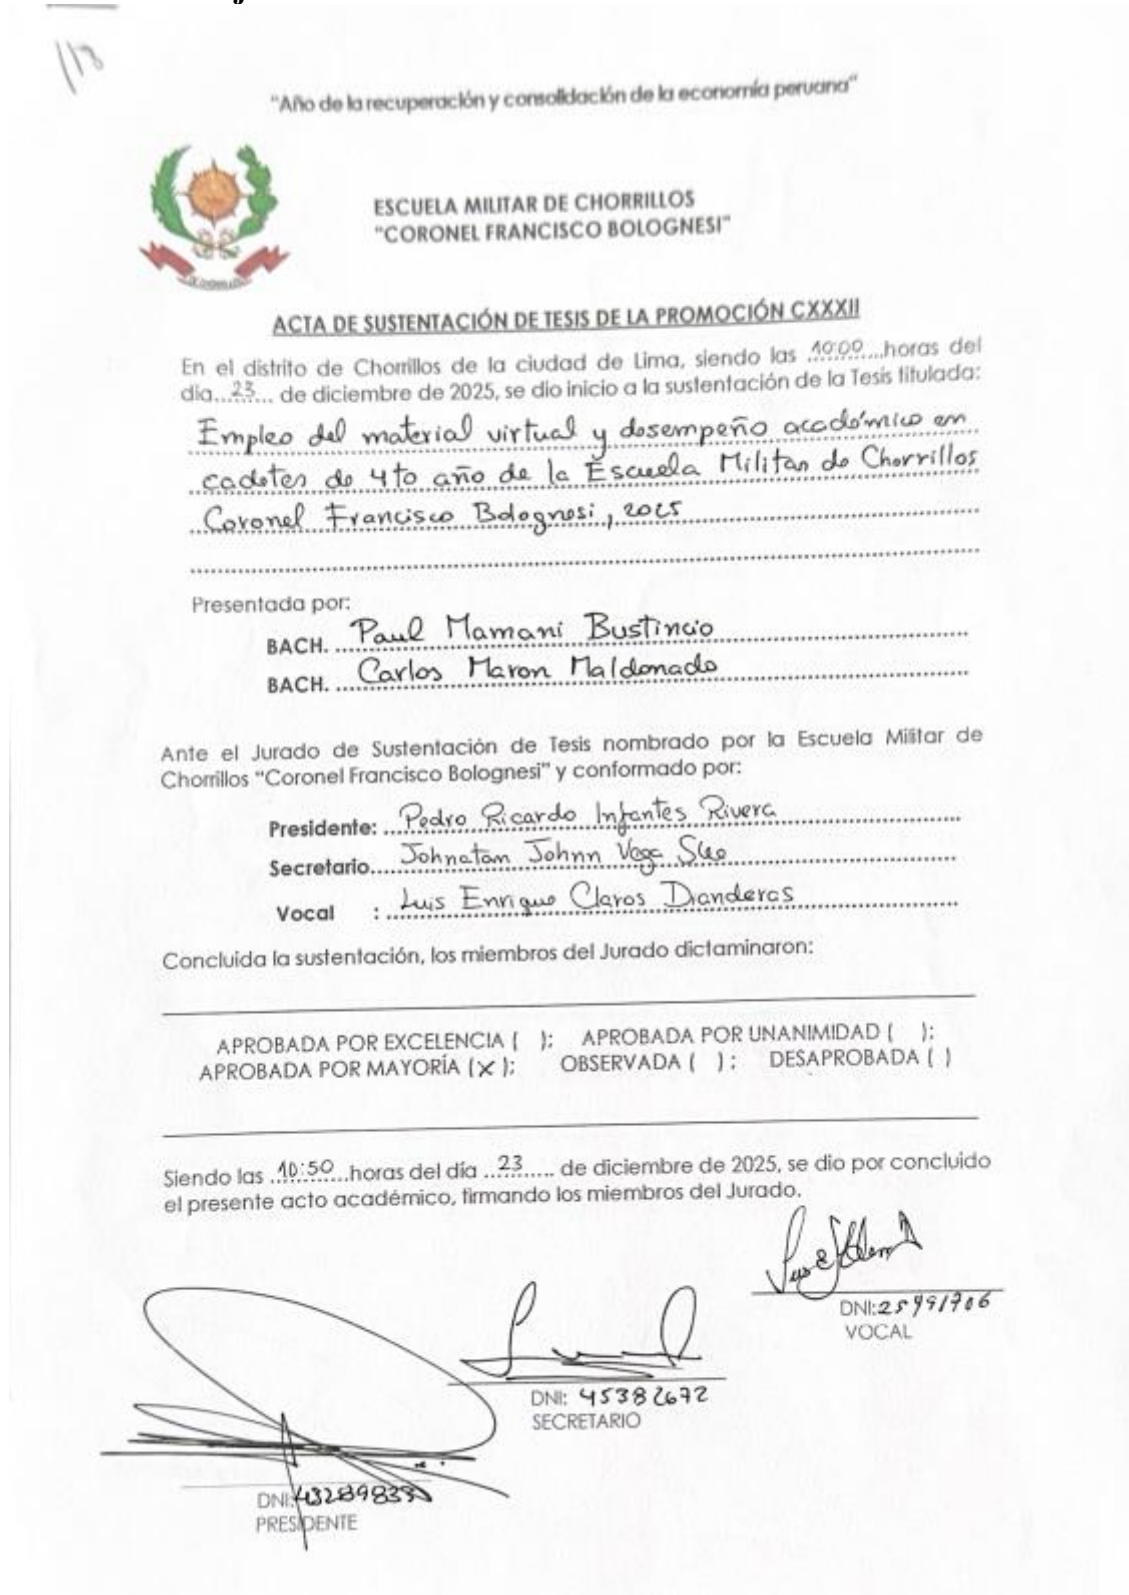 118
"Año de la recuperación y consolidación de la economía peruana"
ESCUELA MILITAR DE CHORRILLOS
"CORONEL FRANCISCO BOLOGNESI"
ACTA DE SUSTENTACIÓN DE TESIS DE LA PROMOCIÓN CXXXII
En el distrito de Chorrillos de la ciudad de Lima, siendo las 10:00 horas del
día 23 de diciembre de 2025, se dio inicio a la sustentación de la Tesis titulada:
Empleo del material virtual y desempeño académico en
cadetes de 4to año de la Escuela Militar de Chorrillos
Coronel Francisco Bolognesi, 2025
Presentada por:
BACH. Paul Mamani Bustincio
BACH. Carlos Maron Maldonado
Ante el Jurado de Sustentación de Tesis nombrado por la Escuela Militar de
Chorrillos "Coronel Francisco Bolognesi" y conformado por:
Presidente: Pedro Ricardo Infantes Rivera
Secretario Johnatan Johnn Vega
Vocal : Luis Enrique Claros Dianderas
Concluida la sustentación, los miembros del Jurado dictaminaron:
APROBADA POR EXCELENCIA ( ); APROBADA POR UNANIMIDAD ( );
APROBADA POR MAYORÍA (X); OBSERVADA ( ); DESAPROBADA ( )
Siendo las 10:50 horas del día 23 de diciembre de 2025, se dio por concluido
el presente acto académico, firmando los miembros del Jurado.
DNI:
VOCAL
DNI: 45382672
SECRETARIO
DNI:
PRESIDENTE